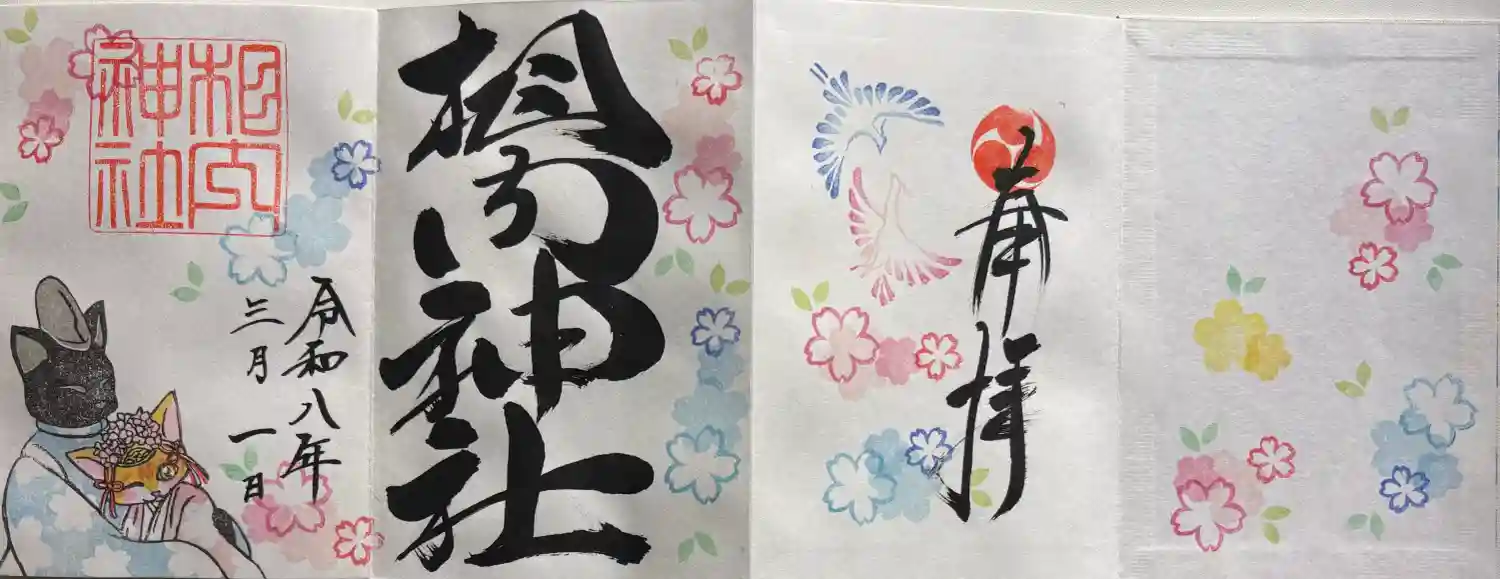 奉拝
相内神社
令和八年
三月一日
相内
神社